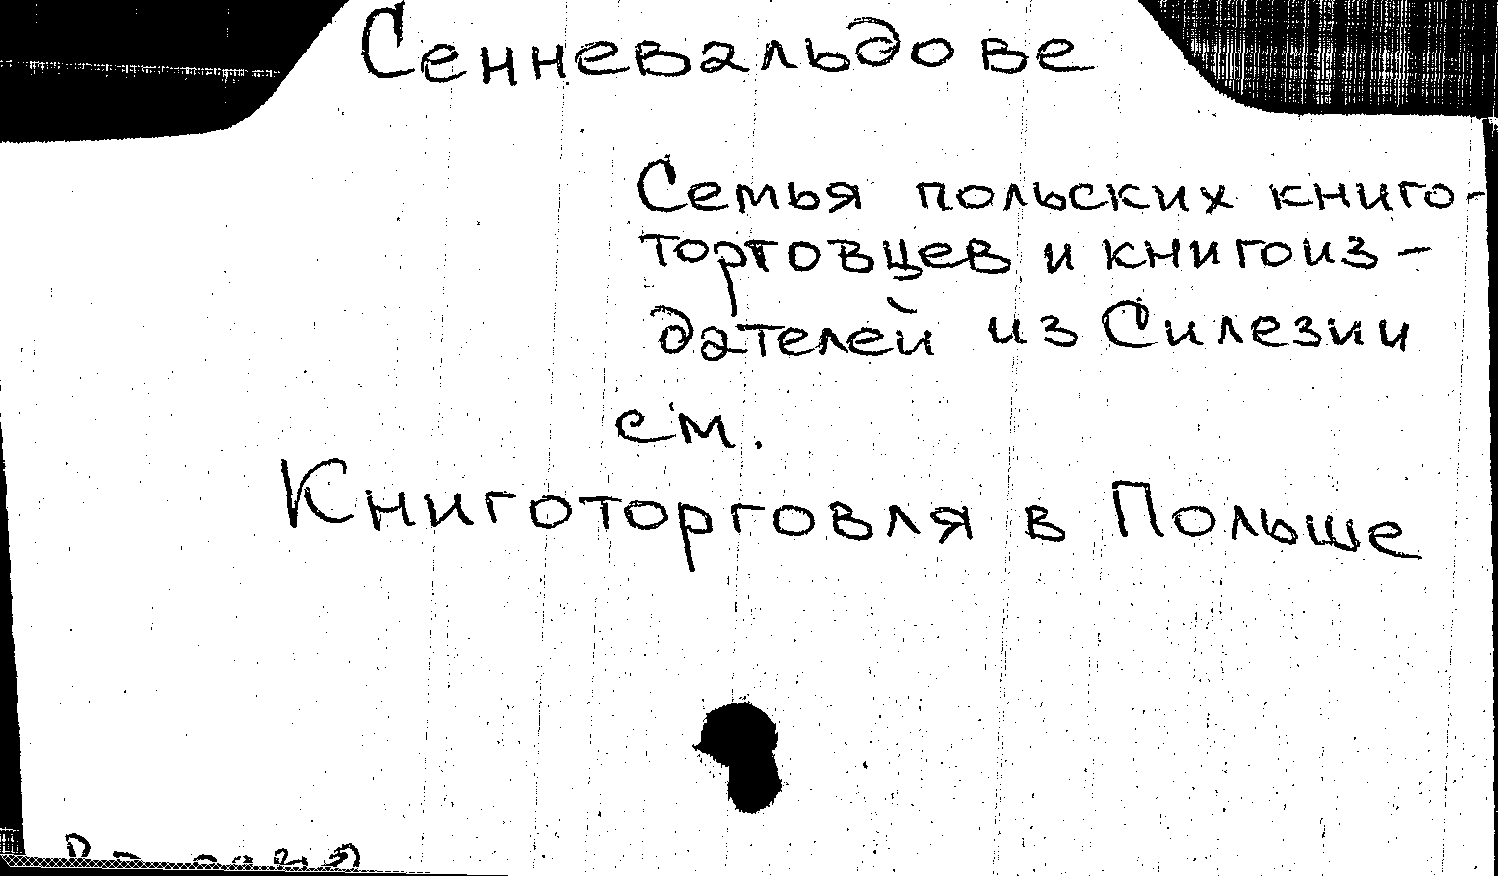 Сенневальдове
Семья польских книго-
торговцев и книгоиз-
дателей из Силезии
см.
Книготорговля в Польше